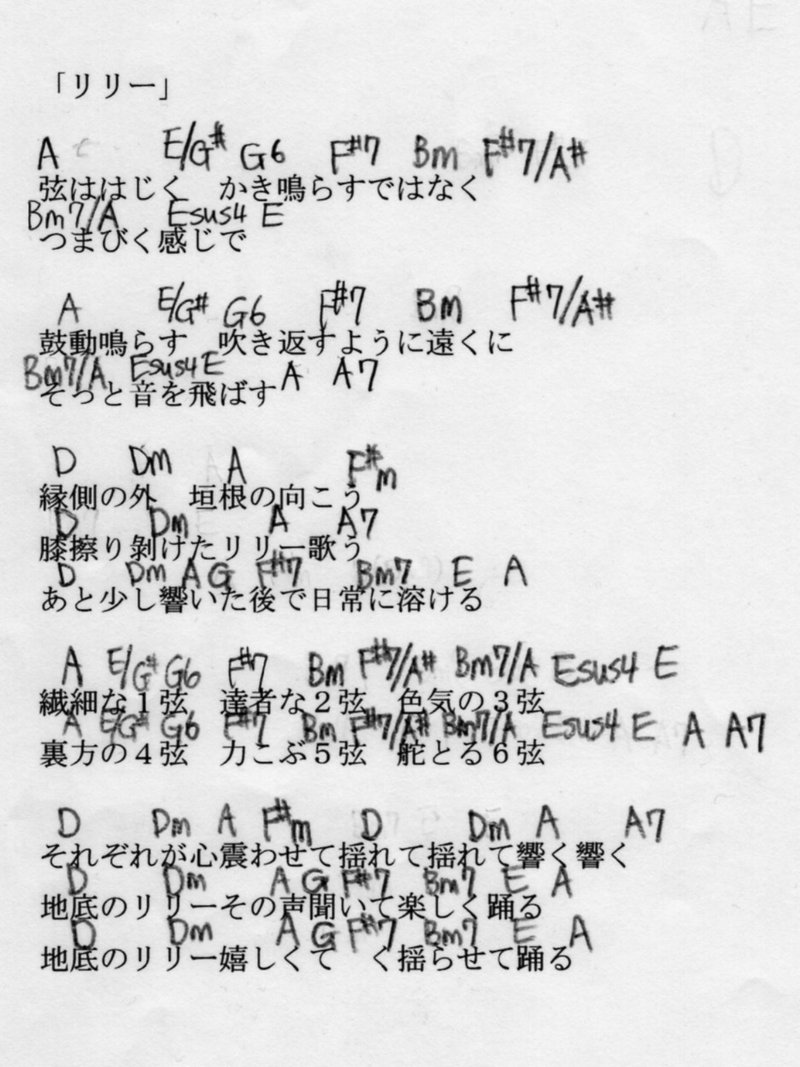 「リリー」
A E/G# G6 F#7 Bm F#7/A#
弦ははじく　かき鳴らすではなく
Bm7/A Esus4 E
つまびく感じで
A E/G# G6 F#7 Bm F#7/A#
鼓動鳴らす　吹き返すように遠くに
Bm7/A Esus4 E A A7
そっと音を飛ばす
D Dm A F#m
縁側の外　垣根の向こう
D Dm A A7
膝擦り剥けたリリー歌う
D Dm A G F#7 Bm7 E A
あと少し響いた後で日常に溶ける
A E/G# G6 F#7 Bm F#7/A# Bm7/A Esus4 E
繊細な１弦　達者な２弦　色気の３弦
A E/G# G6 F#7 Bm F#7/A# Bm7/A Esus4 E A A7
裏方の４弦　力こぶ５弦　舵とる６弦
D Dm A F#m D Dm A A7
それぞれが心震わせて揺れて揺れて響く響く
D Dm A G F#7 Bm7 E A
地底のリリーその声聞いて楽しく踊る
D Dm A G F#7 Bm7 E A
地底のリリー嬉しくて　く揺らせて踊る